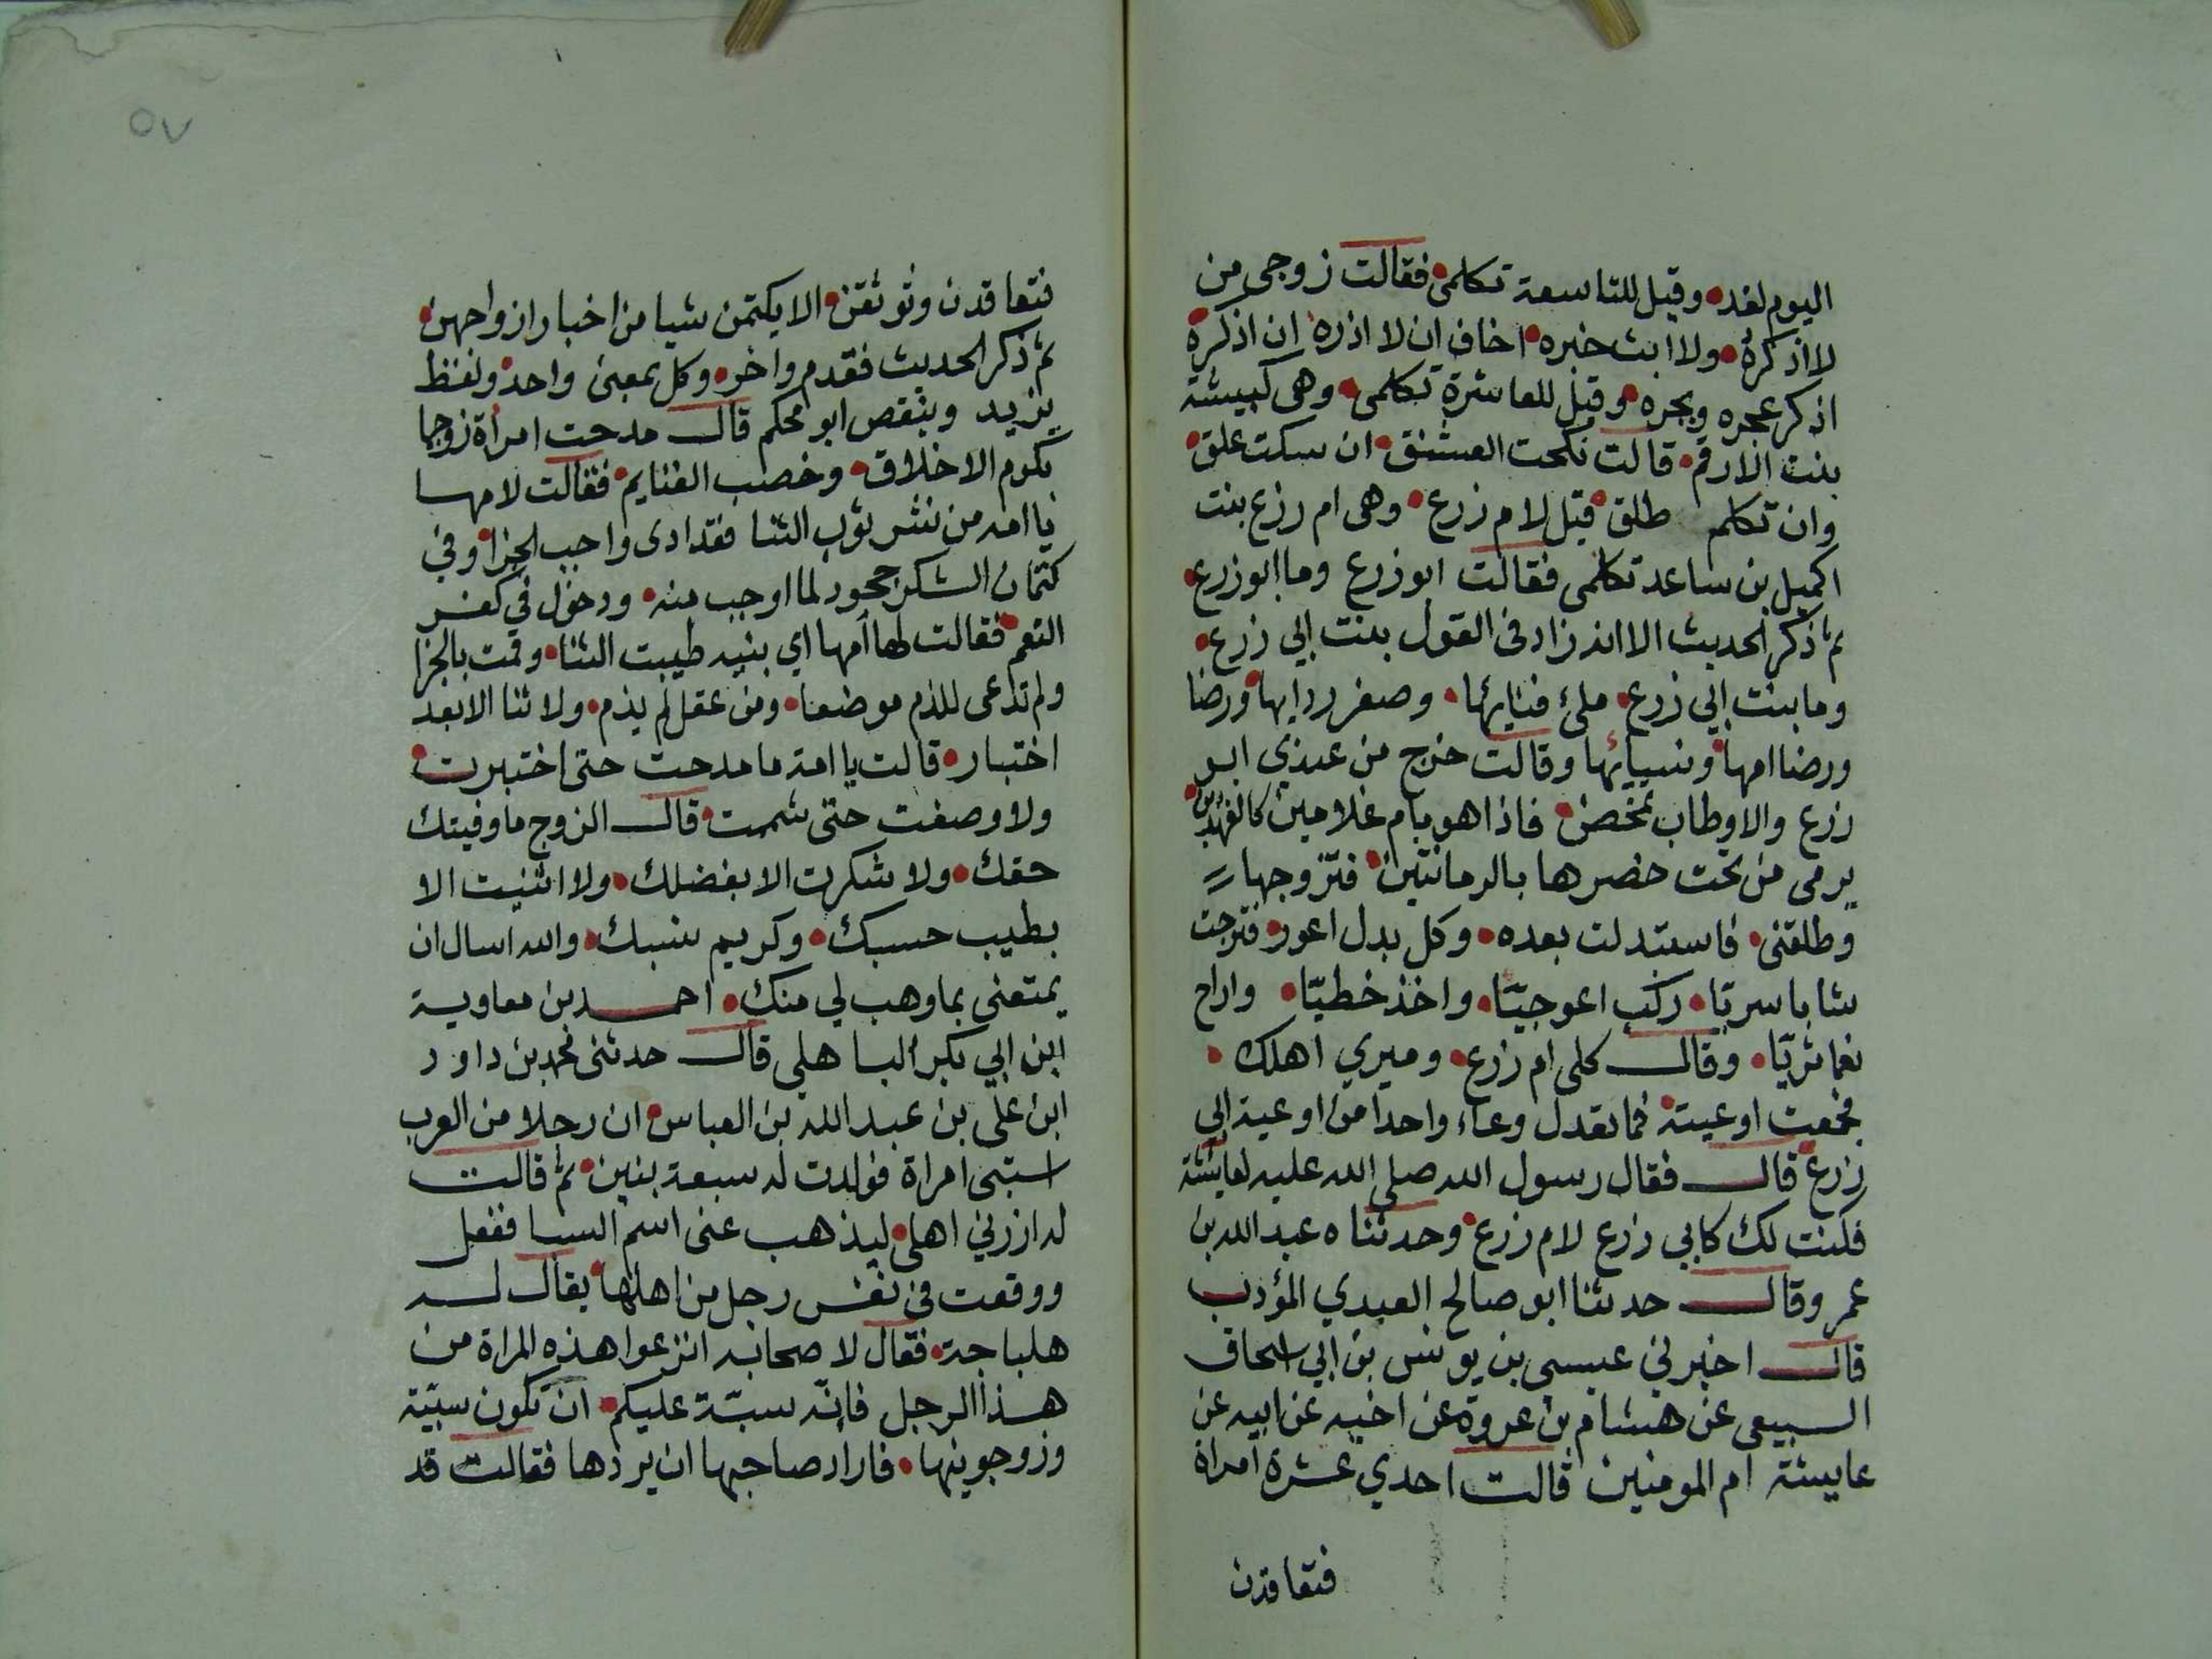 اليوم لغد • وقيل للتاسعة تكلمى • فقالت زوجي من
لا اذكره • ولا ابث خبره • اخاف ان لا اذره ان اذكره •
اذكر عجره وبجره • وقيل للعاشرة تكلمى • وهى كبيشة
بنت الارقم • قالت نكحت العشنق • ان سكت علق •
وان تكلم طلق • قيل لام زرع • وهى ام زرع بنت
اكميل بن ساعد تكلمى فقالت ابو زرع وما ابو زرع •
ثم ذكر الحديث الا انه زاد في القول بنت ابي زرع •
وما بنت ابي زرع • ملئ فنايها • وصفر ردايها • ورضا
ورضا امها • ونسيائها وقالت خرج من عندي ابو
زرع والاوطاب تمخض • فاذا هو بام غلامين كالفهدين •
يرمى من تحت خضرها بالرمانتين • فتزوجها
وطلقنى • فاستبدلت بعده • وكل بدل اعور • فتزوجت
شابا سريا • ركب اعوجيّا • واخذ خطيّا • واراح
نعما ثريّا • وقال كلى ام زرع • وميري اهلك •
فجمعت اوعيته • فما تعدل وعاء واحدا من اوعية ابي
زرع • قال فقال رسول الله صلى الله عليه لعايشة
فكنت لك كابي زرع لام زرع • وحدثناه عبد الله بن
عمر وقال حدثنا ابو صالح العبدي المؤدب
قال اخبرني عيسى بن يونس بن ابي اسحاق
السبيعى عن هشام بن عروة عن اخيه عن ابيه عن
عايشة ام المومنين قالت احدي عشرة امراة
فتعاقدن
٥٧
فتعاقدن وتوثقن • الا يكتمن شيا من اخبار ازواجهن •
ثم ذكر الحديث فقدم واخر • وكل بمعنى واحد • ولفظ
يزيد وينقص ابو محكم قال مدحت امرأة زوجها
بكرم الاخلاق • وخصب الفنايم • فقالت لامها
يا امه من نشر ثوب الثنا فقد ادى واجب الجزا • وفي
كتمان الشكر جحود لما اوجب منه • ودخول في كفر
النعم • فقالت لها امها اي بنيه طيبت الثنا • وقمت بالجزا
ولم تدعى للذم موضعا • ومن عقل لم يذم • ولا ثنا الا بعد
اختبار • قالت يا امة ما مدحت حتى اختبرت •
ولا وصفت حتى شممت • قال الزوج ما وفيتك
حقك • ولا شكرت الا بفضلك • ولا اثنيت الا
بطيب حسبك • وكريم نسبك • والله اسال ان
يمتعنى بما وهب لي منك • احمد بن معاوية
ابن ابي بكر الباهلي قال حدثنى محمد بن داود
ابن على بن عبد الله بن العباس • ان رجلا من العرب
استبى امراة فولدت له سبعة بنين • ثم قالت
له ازرني اهلى • ليذهب عنى اسم السبا ففعل
ووقعت فى نفس رجل من اهلها • يقال له
هلباجة • فقال لاصحابه انزعوا هذه المراة من
هذا الرجل فانّه سبّة عليكم • ان تكون سبيّة
وزوجوينها • فاراد صاحبها ان يردها فقالت قد